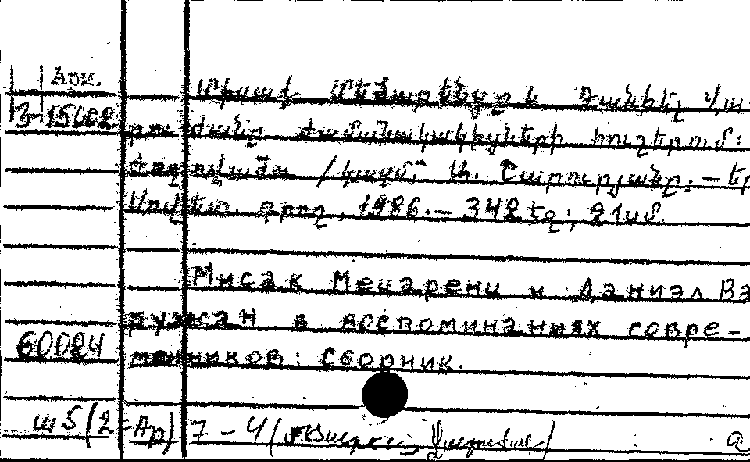 Арм.
3-15602
Միսաք Մեծարենցը և Դանիել Վա-
րուժանը ժամանակակիցների հուշերում:
Ժողովածու /կազմ.՝ Ա. Շարուրյանը.— Եր
Սովետ. գրող, 1986.— 342 էջ; 21սմ.
Мисак Мецаренц и Даниэл Ва
ружан в воспоминаниях совре-
60024
менников: Сборник.
ш5(2=Ар)7-4